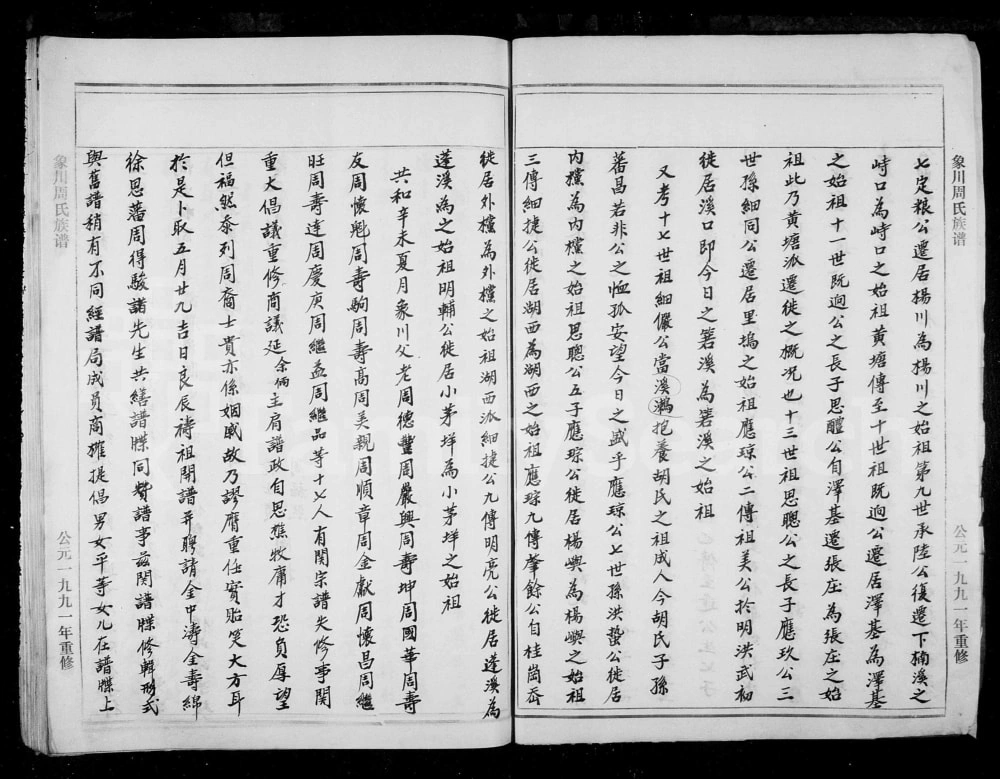 象川周氏族谱
公元一九九一年重修
七定粮公遷居楊川為楊川之始祖第九世承陸公復遷下楠溪之
峙口為峙口之始祖黄塘傳至十世祖既逈公遷居澤基為澤基
之始祖十一世既逈公之長子思醴公自澤基遷張庄為張庄之始
祖此乃黄塘派遷徙之概况也十三世祖思聰公之長子應玖公三
世孫細同公遷居里塢之始祖應琼公二傳祖美公於明洪武初
徙居溪口即今日之箬溪為箬溪之始祖
又考十七世祖細儼公當溪鸂抱養胡氏之祖成人今胡氏子孫
蕃昌若非公之恤孤安望今日之盛乎應琼公七世孫洪蛰公徙居
内櫎為内櫎之始祖思聰公五子應琮公徙居楊奥為楊奥之始祖
三傳細捷公徙居湖西為湖西之始祖應琮九傳肇餘公自桂崗岙
徙居外櫎為外櫎之始祖湖西派細捷公九傳明亮公徙居蓬溪為
蓬溪為之始祖明輔公徙居小茅垟為小茅垟之始祖
共和辛未夏月象川父老周德豐周嚴興周壽坤周國華周壽
友周懷魁周壽駒周壽高周美親周順章周金獻周懷昌周繼
旺周壽達周慶庚周繼益周繼品等十七人有関宗譜失修事関
重大倡議重修商議延余炳主肩譜政自思樵牧庸才恐负厚望
但福然泰列周裔士貴亦係姻戚故乃謬膺重任實貽笑大方耳
於是卜取五月廿九吉日良辰祷祖開譜并聘請金中濤金壽綿
徐思藩周得駿諸先生共繕譜牒同赞譜事兹関譜牒修輯形式
與舊譜稍有不同經譜局成員商榷提倡男女平等女儿在譜牒上
象川周氏族谱
公元一九九一年重修